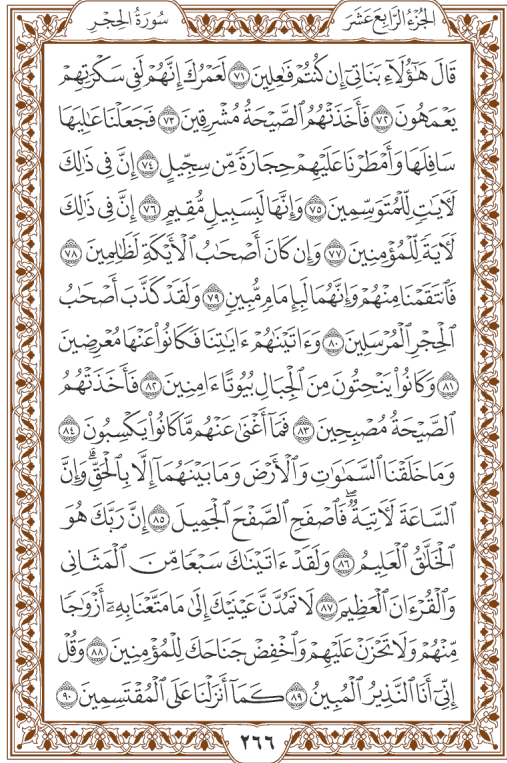 الجُزْءُ الرَّابِعَ عَشَرَ
سُورَةُ الحِجْرِ
قَالَ هَٰٓؤُلَآءِ بَنَاتِىٓ إِن كُنتُمْ فَٰعِلِينَ ٧١ لَعَمْرُكَ إِنَّهُمْ لَفِى سَكْرَتِهِمْ
يَعْمَهُونَ ٧٢ فَأَخَذَتْهُمُ ٱلصَّيْحَةُ مُشْرِقِينَ ٧٣ فَجَعَلْنَا عَٰلِيَهَا
سَافِلَهَا وَأَمْطَرْنَا عَلَيْهِمْ حِجَارَةً مِّن سِجِّيلٍ ٧٤ إِنَّ فِى ذَٰلِكَ
لَءَايَٰتٍ لِّلْمُتَوَسِّمِينَ ٧٥ وَإِنَّهَا لَبِسَبِيلٍ مُّقِيمٍ ٧٦ إِنَّ فِى ذَٰلِكَ
لَءَايَةً لِّلْمُؤْمِنِينَ ٧٧ وَإِن كَانَ أَصْحَٰبُ ٱلْأَيْكَةِ لَظَٰلِمِينَ ٧٨
فَٱنتَقَمْنَا مِنْهُمْ وَإِنَّهُمَا لَبِإِمَامٍ مُّبِينٍ ٧٩ وَلَقَدْ كَذَّبَ أَصْحَٰبُ
ٱلْحِجْرِ ٱلْمُرْسَلِينَ ٨٠ وَءَاتَيْنَٰهُمْ ءَايَٰتِنَا فَكَانُوا۟ عَنْهَا مُعْرِضِينَ
٨١ وَكَانُوا۟ يَنْحِتُونَ مِنَ ٱلْجِبَالِ بُيُوتًا ءَامِنِينَ ٨٢ فَأَخَذَتْهُمُ
ٱلصَّيْحَةُ مُصْبِحِينَ ٨٣ فَمَآ أَغْنَىٰ عَنْهُم مَّا كَانُوا۟ يَكْسِبُونَ ٨٤
وَمَا خَلَقْنَا ٱلسَّمَٰوَٰتِ وَٱلْأَرْضَ وَمَا بَيْنَهُمَآ إِلَّا بِٱلْحَقِّ ۗ وَإِنَّ
ٱلسَّاعَةَ لَءَاتِيَةٌ ۖ فَٱصْفَحِ ٱلصَّفْحَ ٱلْجَمِيلَ ٨٥ إِنَّ رَبَّكَ هُوَ
ٱلْخَلَّٰقُ ٱلْعَلِيمُ ٨٦ وَلَقَدْ ءَاتَيْنَٰكَ سَبْعًا مِّنَ ٱلْمَثَانِى
وَٱلْقُرْءَانَ ٱلْعَظِيمَ ٨٧ لَا تَمُدَّنَّ عَيْنَيْكَ إِلَىٰ مَا مَتَّعْنَا بِهِۦٓ أَزْوَٰجًا
مِّنْهُمْ وَلَا تَحْزَنْ عَلَيْهِمْ وَٱخْفِضْ جَنَاحَكَ لِلْمُؤْمِنِينَ ٨٨ وَقُلْ
إِنِّىٓ أَنَا ٱلنَّذِيرُ ٱلْمُبِينُ ٨٩ كَمَآ أَنزَلْنَا عَلَى ٱلْمُقْتَسِمِينَ ٩٠
٢٦٦